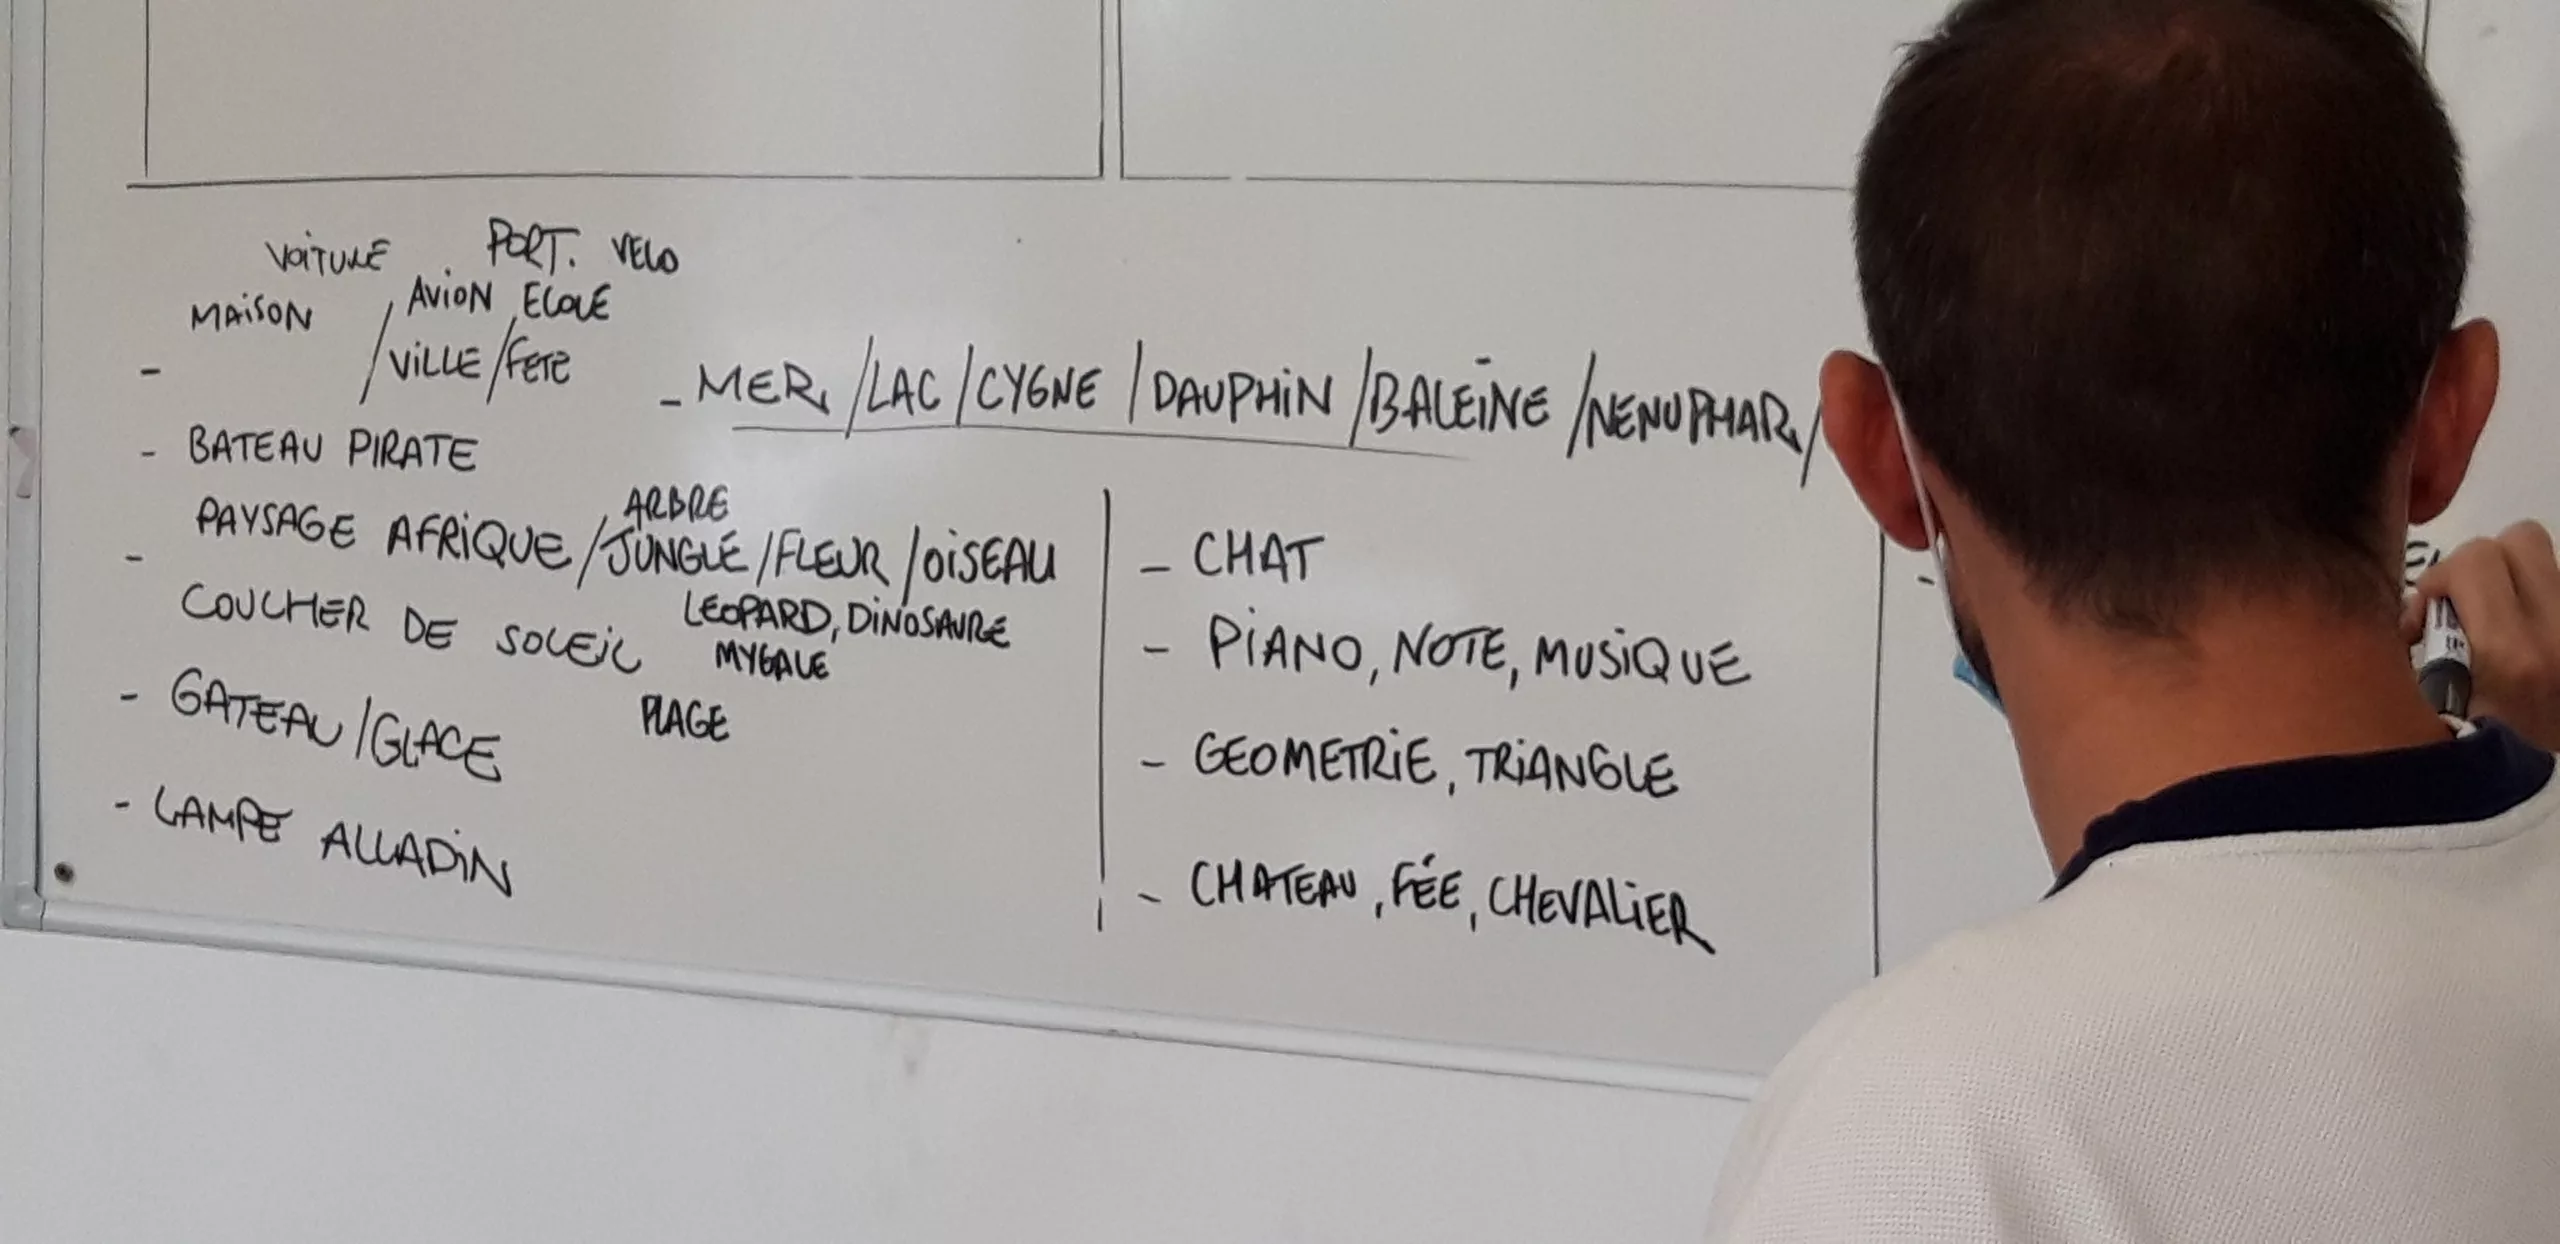 VOITURE PORT. VELO
MAISON / AVION, ECOLE
- / VILLE / FETE
- BATEAU PIRATE
ARBRE
- PAYSAGE AFRIQUE / JUNGLE / FLEUR / OISEAU
COUCHER DE SOLEIL LEOPARD, DINOSAURE
MYGALE
- GATEAU / GLACE PLAGE
- LAMPE ALLADIN
- MER / LAC / CYGNE / DAUPHIN / BALEINE / NENUPHAR /
- CHAT
- PIANO, NOTE, MUSIQUE
- GEOMETRIE, TRIANGLE
- CHATEAU, FÉE, CHEVALIER